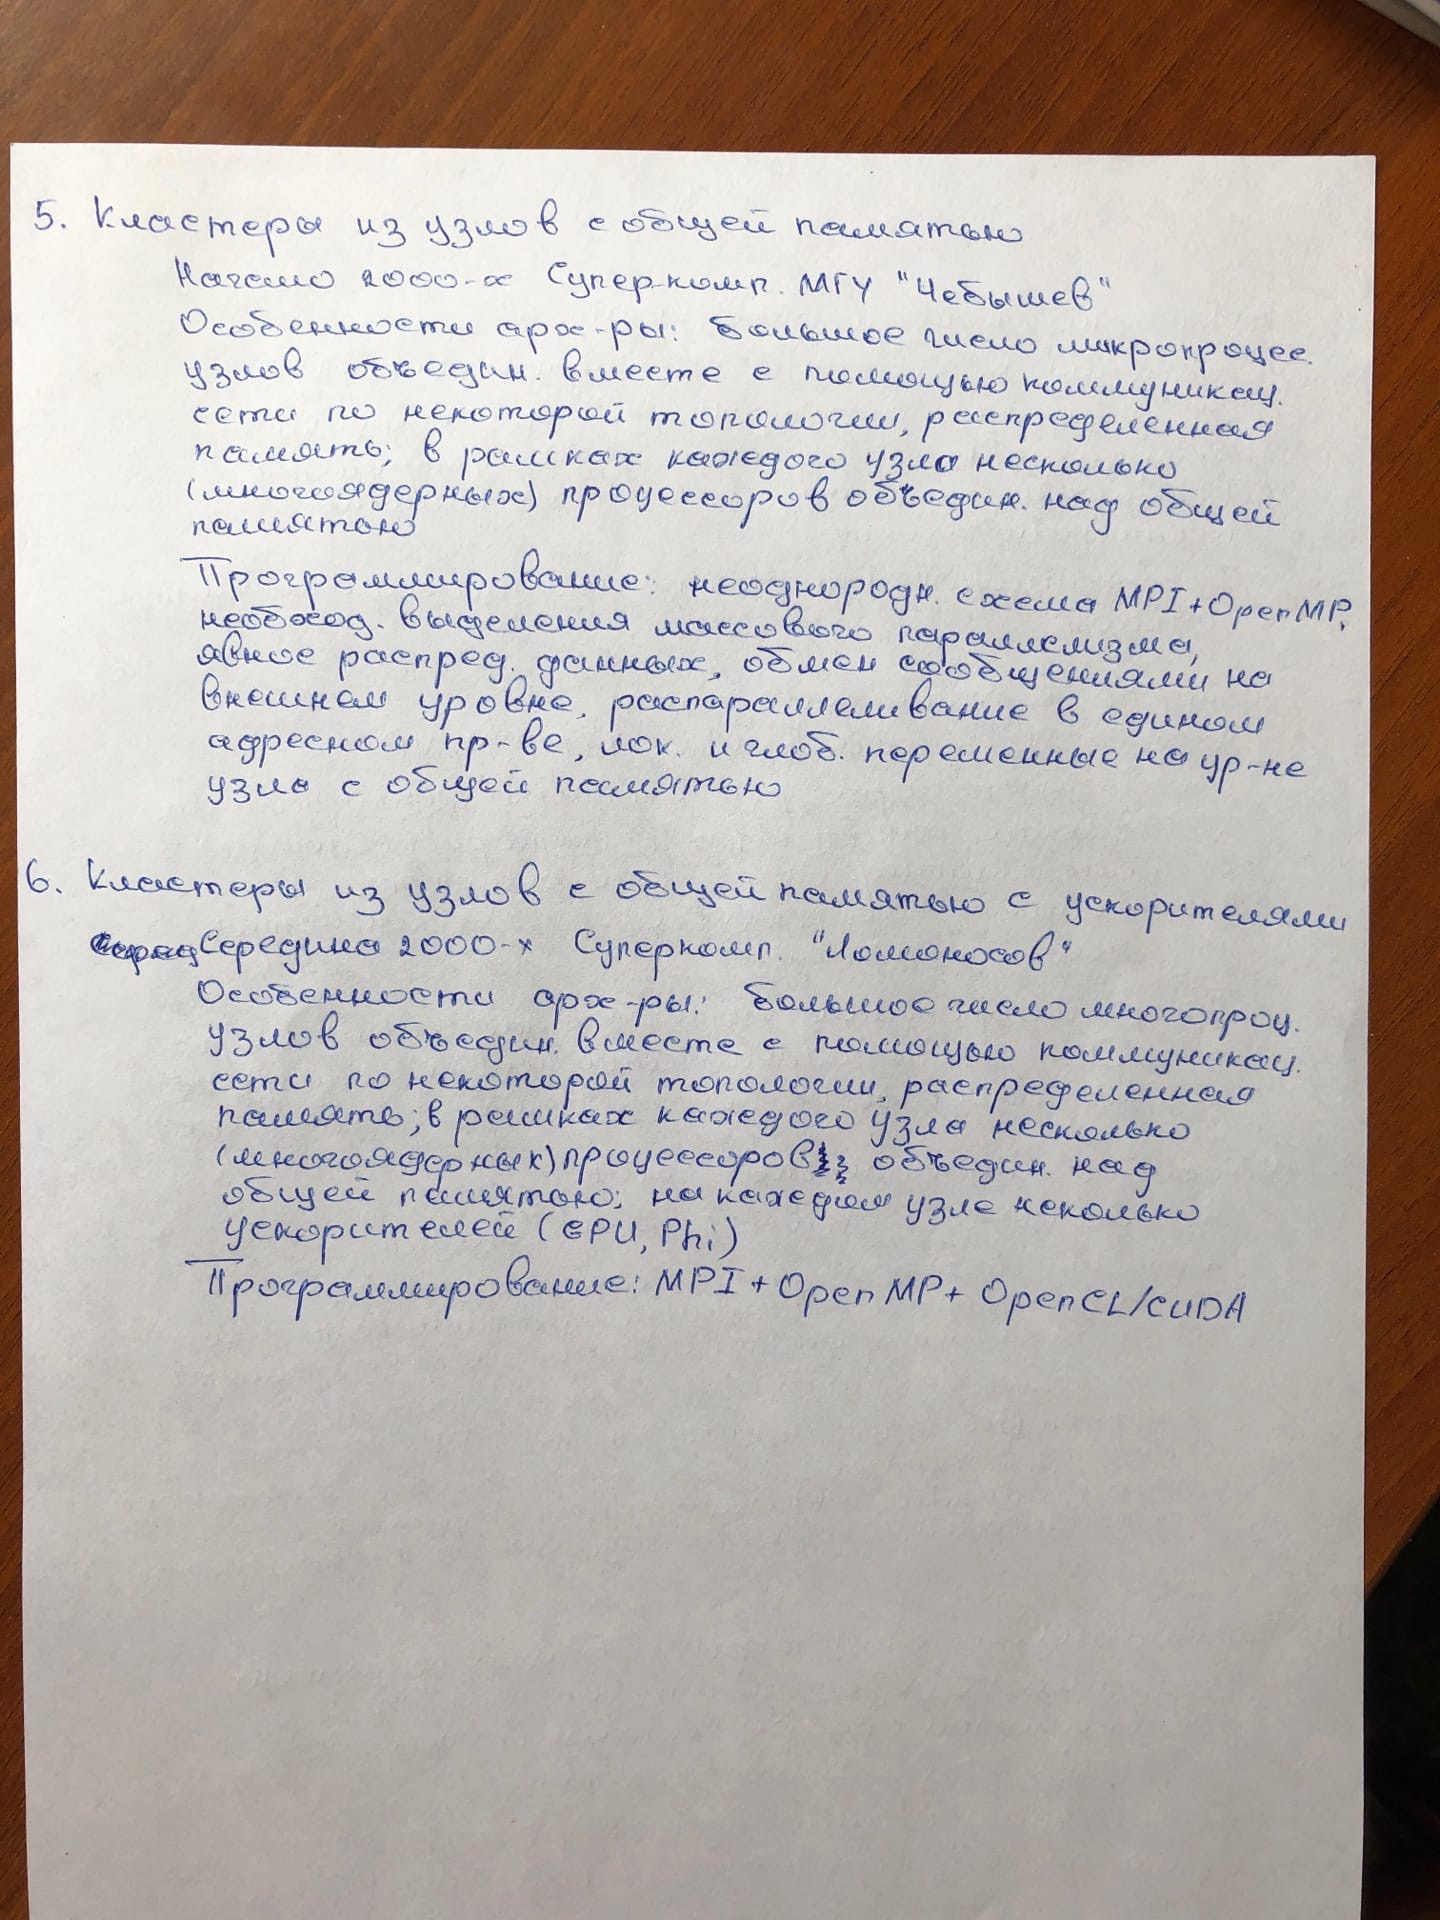 5. Кластеры из узлов с общей памятью
Начало 2000-х Супер-комп. МГУ "Чебышев"
Особенности арх-ры: большое число микропроцес.
узлов объедин. вместе с помощью коммуникац.
сети по некоторой топологии, распределенная
память; в рамках каждого узла несколько
(многоядерных) процессоров объедин. над общей
памятью
Программирование: неоднородн. схема MPI+OpenMP,
необход. выделения массового параллелизма,
явное распред. данных, обмен сообщениями на
внешнем уровне, распараллеливание в едином
адресном пр-ве, лок. и глоб. переменные на ур-не
узла с общей памятью
6. Кластеры из узлов с общей памятью с ускорителями
Середина 2000-х Суперкомп. "Ломоносов"
Особенности арх-ры: большое число многопроц.
узлов объедин. вместе с помощью коммуникац.
сети по некоторой топологии, распределенная
память; в рамках каждого узла несколько
(многоядерных) процессоров объедин. над
общей памятью; на каждом узле неколько
ускорителей (GPU, Phi)
Программирование: MPI + OpenMP + OpenCL/CUDA